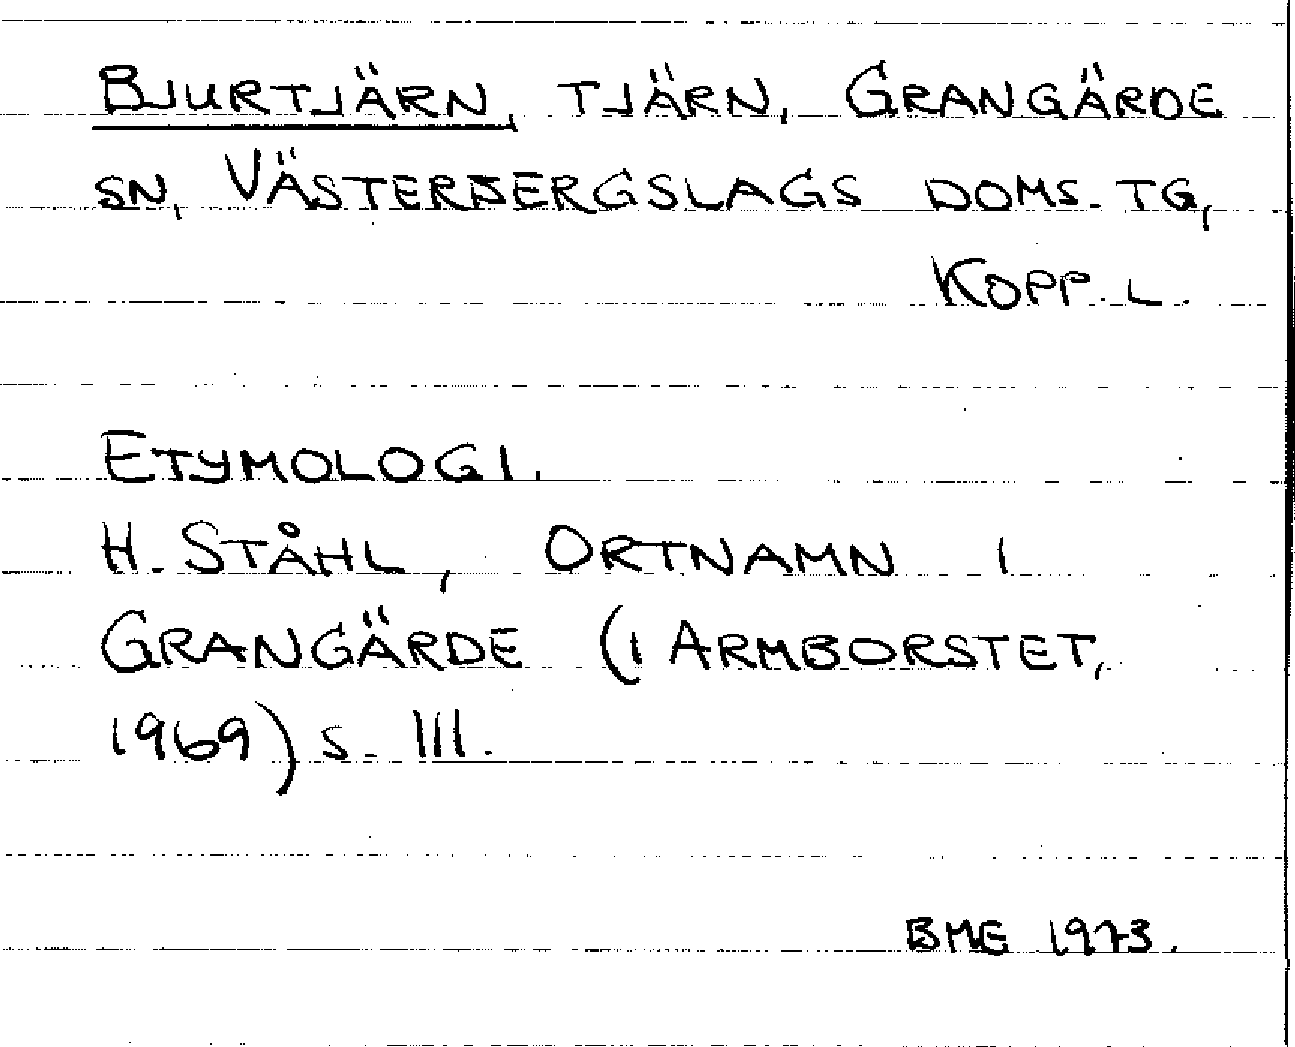 BJURTJÄRN, TJÄRN, GRANGÄRDE
SN, VÄSTERBERGSLAGS DOMS. TG,
KOPP. L.
ETYMOLOGI.
H. STÅHL, ORTNAMN I
GRANGÄRDE (I ARMBORSTET,
1969) S. 111.
BME 1973.